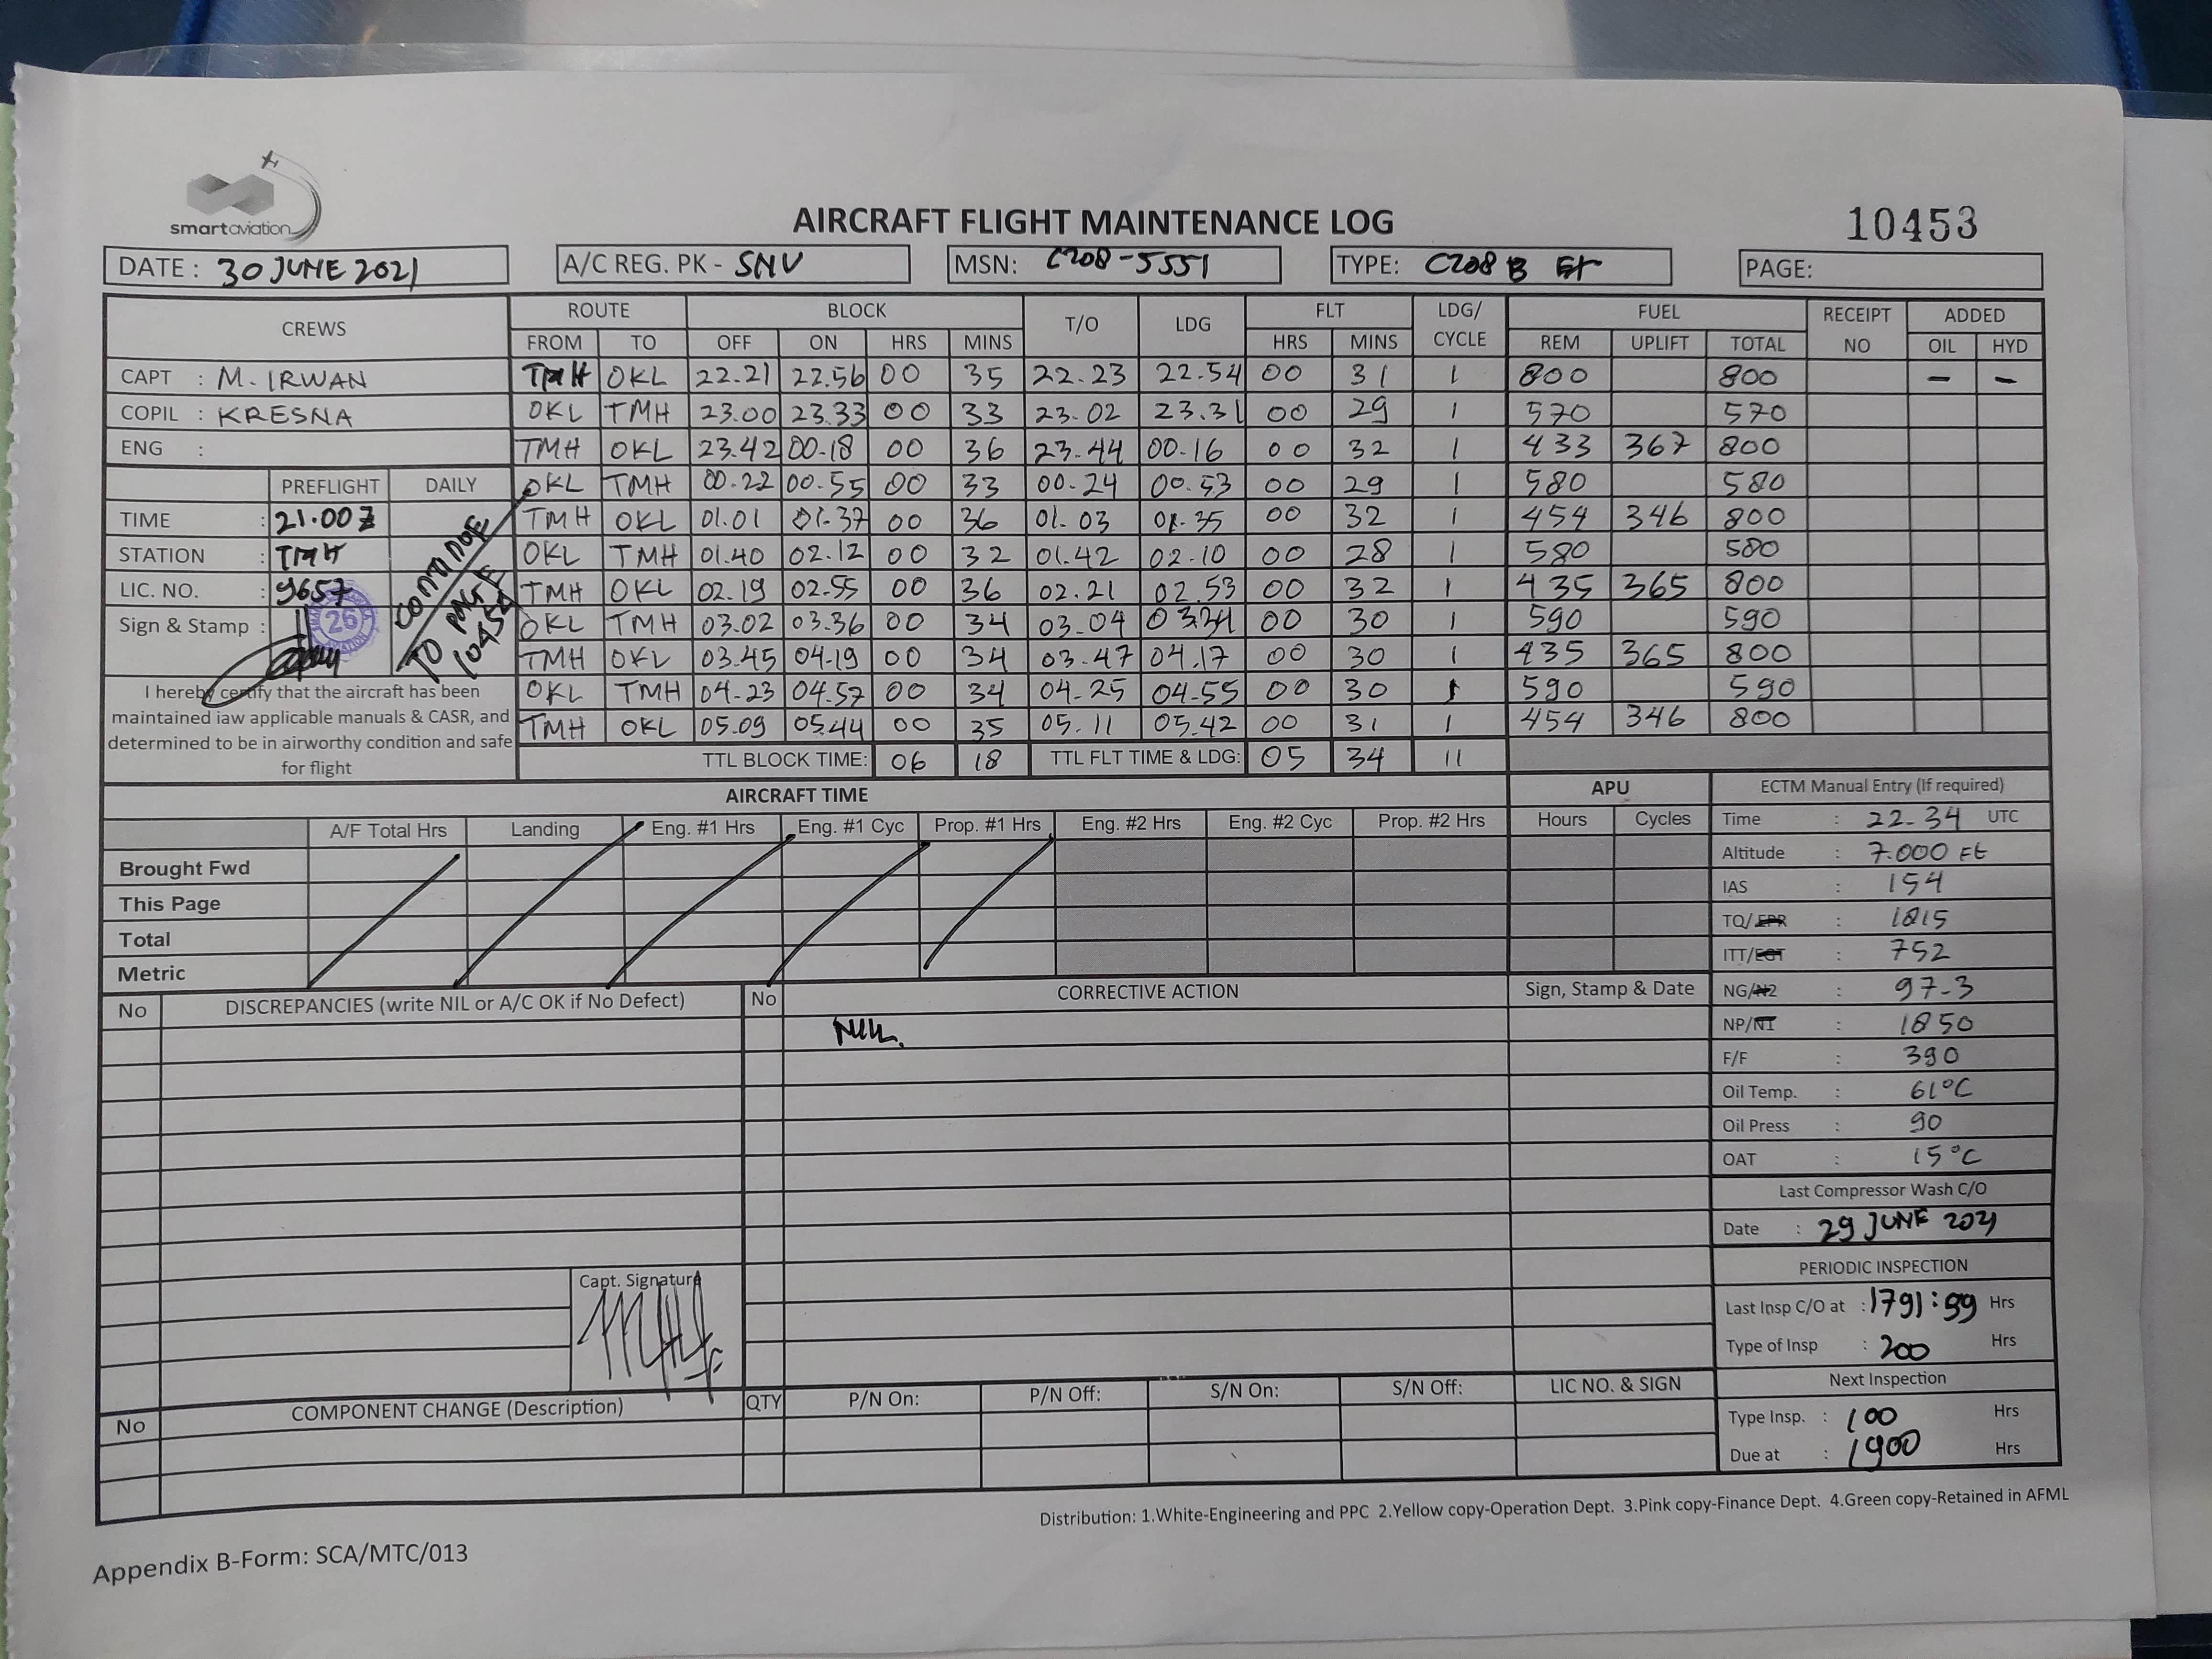 smartaviation
AIRCRAFT FLIGHT MAINTENANCE LOG
10453
DATE : 30 JUNE 2021 A/C REG. PK - SNV MSN: C208-5551 TYPE: C208 B EX PAGE:
CREWS ROUTE BLOCK T/O LDG FLT LDG/ CYCLE FUEL RECEIPT NO ADDED
FROM TO OFF ON HRS MINS HRS MINS REM UPLIFT TOTAL OIL HYD
CAPT : M. IRWAN TMH OKL 22.21 22.56 00 35 22.23 22.54 00 31 1 800 800 – –
COPIL : KRESNA OKL TMH 23.00 23.33 00 33 23.02 23.31 00 29 1 570 570
ENG : TMH OKL 23.42 00.18 00 36 23.44 00.16 00 32 1 433 367 800
PREFLIGHT DAILY OKL TMH 00.22 00.55 00 33 00.24 00.53 00 29 1 580 580
TIME : 21.00 Z TMH OKL 01.01 01.37 00 36 01.03 01.35 00 32 1 454 346 800
STATION : TMH OKL TMH 01.40 02.12 00 32 01.42 02.10 00 28 1 580 580
LIC. NO. : 9657 TMH OKL 02.19 02.55 00 36 02.21 02.53 00 32 1 435 365 800
Sign & Stamp : 26 OKL TMH 03.02 03.36 00 34 03.04 03.34 00 30 1 590 590
CONTINUE TO PAGE 10454
TMH OKL 03.45 04.19 00 34 03.47 04.17 00 30 1 435 365 800
OKL TMH 04.23 04.57 00 34 04.25 04.55 00 30 1 590 590
TMH OKL 05.09 05.44 00 35 05.11 05.42 00 31 1 454 346 800
I hereby certify that the aircraft has been
maintained iaw applicable manuals & CASR, and
determined to be in airworthy condition and safe
for flight
TTL BLOCK TIME: 06 18 TTL FLT TIME & LDG: 05 34 11
AIRCRAFT TIME APU
A/F Total Hrs Landing Eng. #1 Hrs Eng. #1 Cyc Prop. #1 Hrs Eng. #2 Hrs Eng. #2 Cyc Prop. #2 Hrs Hours Cycles
Brought Fwd
This Page
Total
Metric
ECTM Manual Entry (If required)
Time : 22.34 UTC
Altitude : 7.000 Ft
IAS : 154
TQ/EPR : 1815
ITT/EGT : 752
NG/N2 : 97.3
NP/N1 : 1850
F/F : 390
Oil Temp. : 61°C
Oil Press : 90
OAT : 15°C
Last Compressor Wash C/O
Date : 29 JUNE 2021
PERIODIC INSPECTION
Last Insp C/O at : 1791:59 Hrs
Type of Insp : 200 Hrs
Next Inspection
Type Insp. : 100 Hrs
Due at : 1900 Hrs
No DISCREPANCIES (write NIL or A/C OK if No Defect) No CORRECTIVE ACTION Sign, Stamp & Date
NIL.
Capt. Signature
No COMPONENT CHANGE (Description) QTY P/N On: P/N Off: S/N On: S/N Off: LIC NO. & SIGN
Distribution: 1.White-Engineering and PPC 2.Yellow copy-Operation Dept. 3.Pink copy-Finance Dept. 4.Green copy-Retained in AFML
Appendix B-Form: SCA/MTC/013